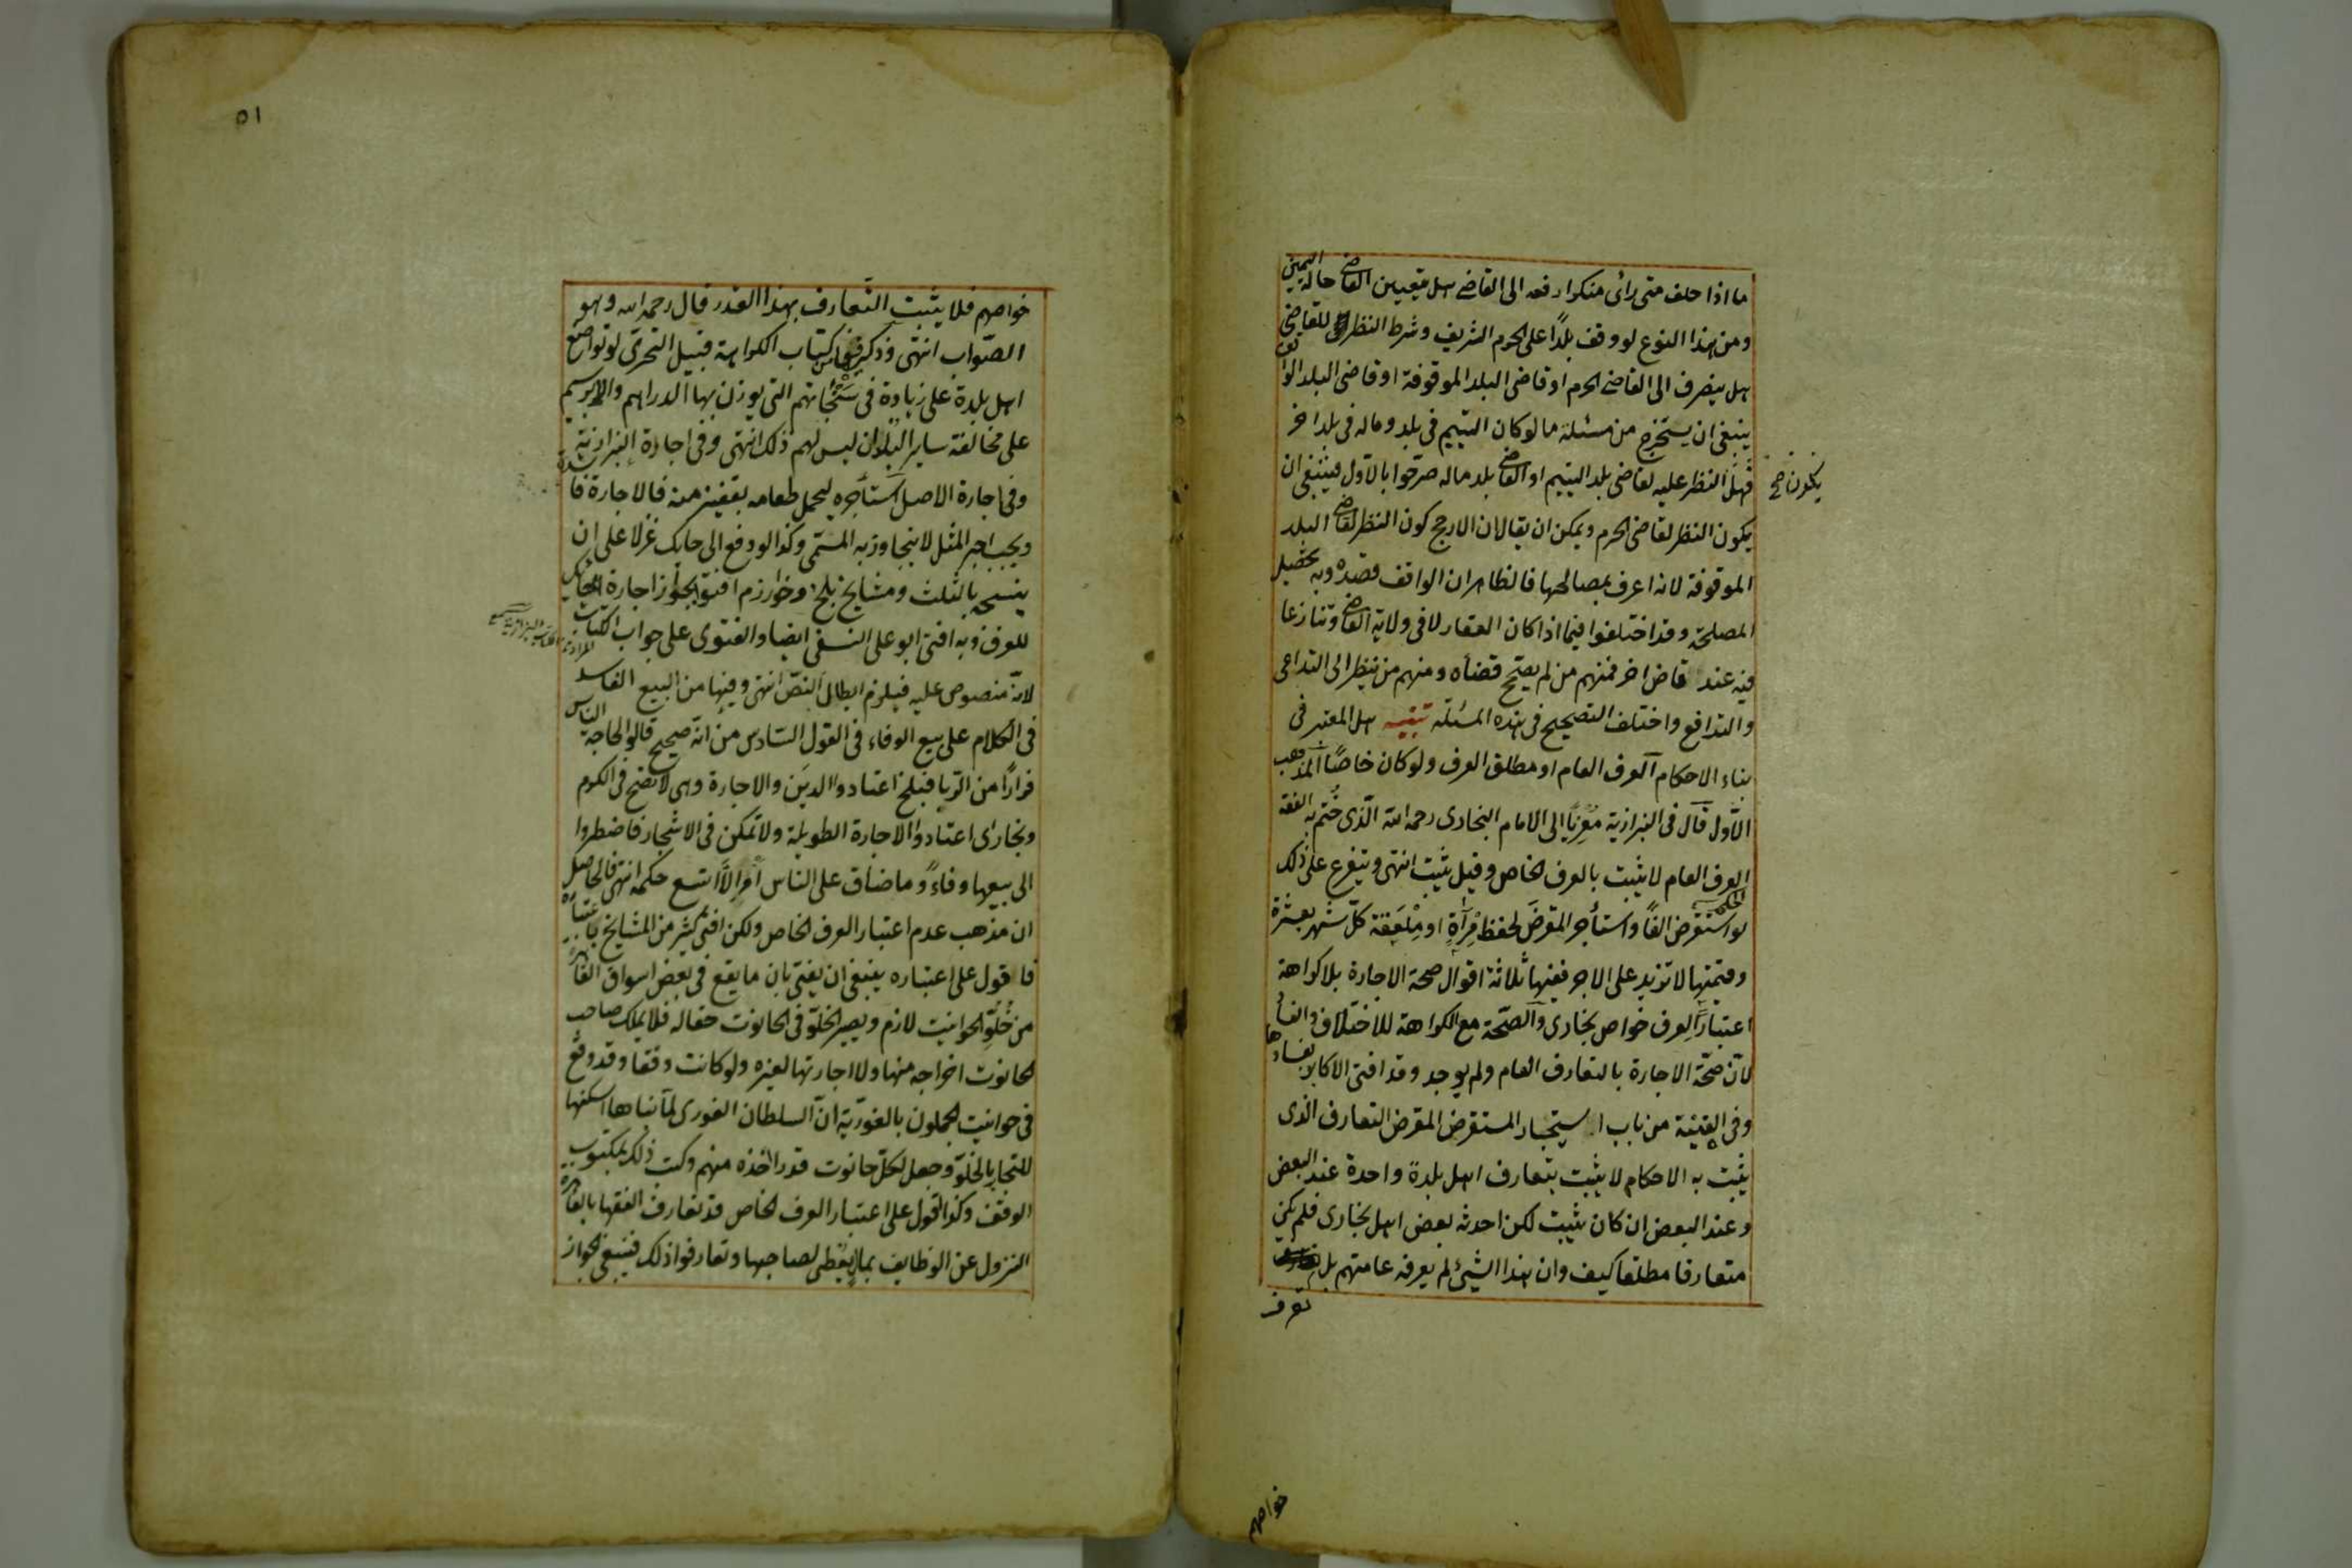 ما اذا حلف متى رائى منكرا رفعه الى القاضى هل يتعين القاضى حالة اليمين
ومن هذا النوع لو وقف بلدًا على الحرم الشريف وشرط النظر للقاضى
هل ينصرف الى القاضى الحرم او قاضى البلد الموقوفة او قاضى البلد الواقف
ينبغى ان يستخرج من مسئلة ما لو كان اليتيم فى بلد وماله فى بلد اخر
فهل النظر عليه لقاضى بلد اليتيم او القاضى بلد ماله صرحوا بالاول فينبغى ان
يكون صح
يكون النظر لقاضى الحرم ويمكن ان يقال ان الارجح كون النظر لقاضى البلد
الموقوفة لانه اعرف بمصالحها فالظاهر ان الواقف قصده وبه تحصيل
المصلحة وقد اختلفوا فيما اذا كان العقار لا فى ولاية القاضى وتنازعا
فيه عند قاض اخر فمنهم من لم يصحح قضأه ومنهم من نظر الى التداعى
والتدافع واختلف التصحيح فى هذه المسئلة تنبيه هل المعتبر فى
بناء الاحكام العرف العام او مطلق العرف ولو كان خاصًا المذهب
الاول قال فى البزازية معزيًا الى الامام البخارى رحمه الله الذى ختم به الفقه
الحكم
العرف العام لا يثبت بالعرف الخاص وقيل يثبت انتهى ويتفرع على ذلك
لو استقرض الفًا واستأجر المقرض لحفظ مرآة او ملعقة كل شهر بعشرة
وقيمتها لا تزيد على الاجر ففيها ثلاثة اقوال صحة الاجارة بلا كراهة
اعتبارًا لعرف خواص بخارى والصحة مع الكراهة للاختلاف والفساد
لان صحة الاجارة بالتعارف العام ولم يوجد وقد افتى الاكابر بفسادها
وفى القنية من باب استيجار المستقرض المقرض التعارف الذى
يثبت به الاحكام لا يثبت بتعارف اهل بلدة واحدة عند البعض
وعند البعض ان كان يثبت لكن احدثه بعض اهل بخارى فلم يكن
متعارفا مطلقا كيف وان هذا الشيئ لم يعرفه عامتهم بل
تعرف
خواصهم
٥١
خواصهم فلا يثبت التعارف بهذا القدر قال رحمه الله وهو
الصواب انتهى وذكر فيها من كتاب الكراهة قبيل التحرى لو تواضع
اهل بلدة على زيادة فى سنجاتهم التى يوزن بها الدراهم والابريسم
على مخالفة ساير البلدان ليس لهم ذلك انتهى وفى اجارة البزازية
وفى اجارة الاصل استأجره ليحمل طعامه بقفيز منه فالاجارة فاسدة
ويجب اجر المثل لا يتجاوز به المسمى وكذا لو دفع الى حايك غزلا على ان
ينسجه بالثلث ومشايخ بلخ وخوارزم افتوا بجواز اجارة الحايك
للعرف وبه افتى ابو على النسفى ايضا والفتوى على جواب الكتاب
لانه منصوص عليه فيلزم ابطال النص انتهى وفيها من البيع الفاسد
فى الكلام على بيع الوفاء فى القول السادس من انه صحيح قالوا لحاجة الناس
فرارًا من الربا فبلخ اعتادوا الدين والاجارة وهى لا تصح فى الكرم
وبخارى اعتادوا الاجارة الطويلة ولا تمكن فى الاشجار فاضطروا
الى بيعها وفاءً وما ضاق على الناس امر الا اتسع حكمه انتهى فالحاصل
ان مذهب عدم اعتبار العرف الخاص ولكن افتى كثير من المشايخ باعتباره
فاقول على اعتباره ينبغى ان يفتى بان ما يقع فى بعض اسواق القاهرة
من خلو الحوانيت لازم ويصير الخلو فى الحانوت حقا له فلا يملك صاحب
الحانوت اخراجه منها ولا اجارتها لغيره ولو كانت وقفا وقد وقع
فى حوانيت الجملون بالغورية ان السلطان الغورى لما بناها اسكنها
للتجار بالخلو وجعل لكل حانوت قدرا اخذه منهم وكتب ذلك بمكتوب
الوقف وكذا اقول على اعتبار العرف الخاص قد تعارف الفقها بالقاهرة
النزول عن الوظايف بمال يعطى لصاحبها وتعارفوا ذلك فينبغى الجواز